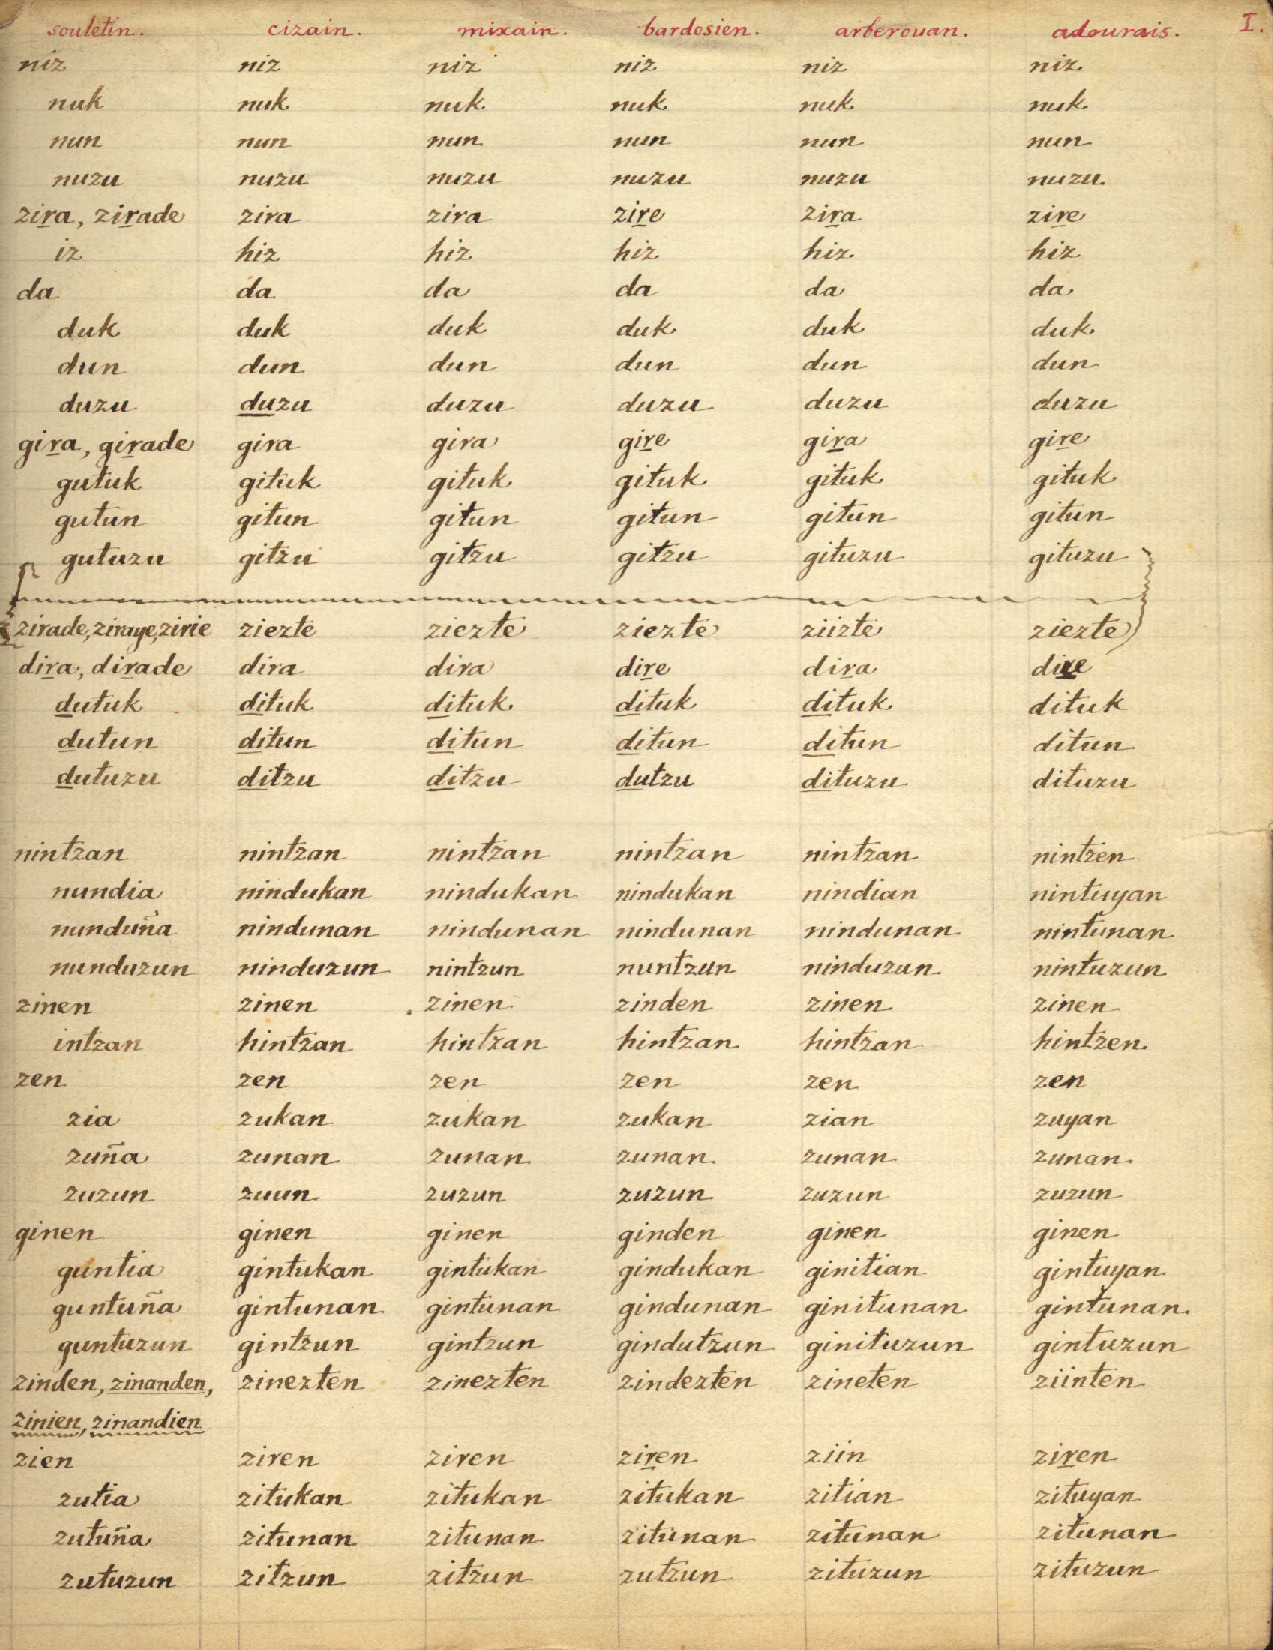 souletin. cizain. mixain. bardosien. arberouan. adourais. I.
niz niz niz niz niz niz
nuk nuk nuk nuk nuk nuk
nun nun nun nun nun nun
nuzu nuzu nuzu nuzu nuzu nuzu
zira, zirade zira zira zire zira zire
iz hiz hiz hiz hiz hiz
da da da da da da
duk duk duk duk duk duk
dun dun dun dun dun dun
duzu duzu duzu duzu duzu duzu
gira, girade gira gira gire gira gire
gutuk gituk gituk gituk gituk gituk
gutun gitun gitun gitun gitun gitun
gutuzu gitzu gitzu gitzu gituzu gituzu
zirade, ziraye, zirie ziezte ziezte ziezte ziizte ziezte
dira, dirade dira dira dire dira dire
dutuk dituk dituk dituk dituk dituk
dutun ditun ditun ditun ditun ditun
dutuzu ditzu ditzu dutzu dituzu dituzu
nintzan nintzan nintzan nintzan nintzan nintzen
nundia nindukan nindukan nindukan nindian nintuyan
nunduña nindunan nindunan nindunan nindunan nintunan
nunduzun ninduzun nintzun nuntzun ninduzun nintuzun
zinen zinen zinen zinden zinen zinen
intzan hintzan hintzan hintzan hintzan hintzen
zen zen zen zen zen zen
zia zukan zukan zukan zian zuyan
zuña zunan zunan zunan zunan zunan
zuzun zuun zuzun zuzun zuzun zuzun
ginen ginen ginen ginden ginen ginen
guntia gintukan gintukan gindukan ginitian gintuyan
guntuña gintunan gintunan gindunan ginitunan gintunan
guntuzun gintzun gintzun gindutzun ginituzun gintuzun
zinden, zinanden, zinezten zinezten zindezten zineten ziinten
zinien, zinandien
zien ziren ziren ziren ziin ziren
zutia zitukan zitukan zitukan zitian zituyan
zutuña zitunan zitunan zitunan zitunan zitunan
zutuzun zitzun zitzun zutzun zituzun zituzun